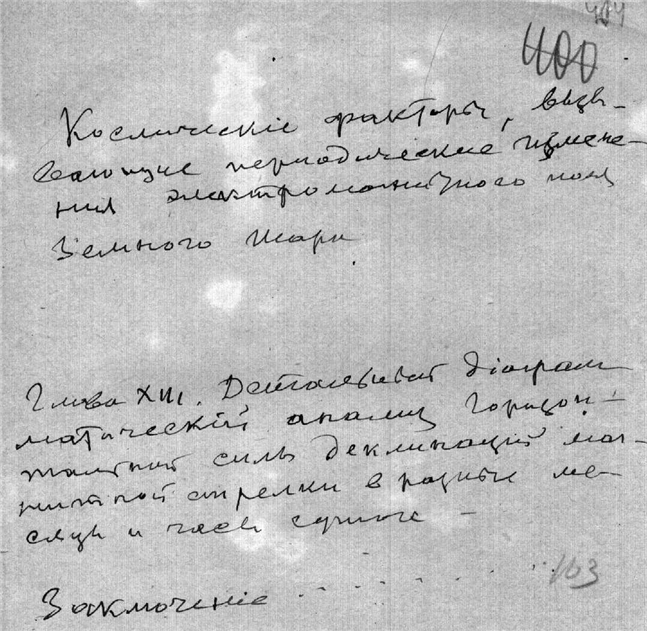 400
Космическіе факторы, вызы-
вающие периодические измене-
ния электромагнитного поля
Земного шара
Глава XIII. Детальный діаграм
матическій анализ горизон-
тальной силы деклинаций маг-
нитной стрелки в разные ме-
сяцы и часы суток –
Заключеніе . . . . . . . . 163